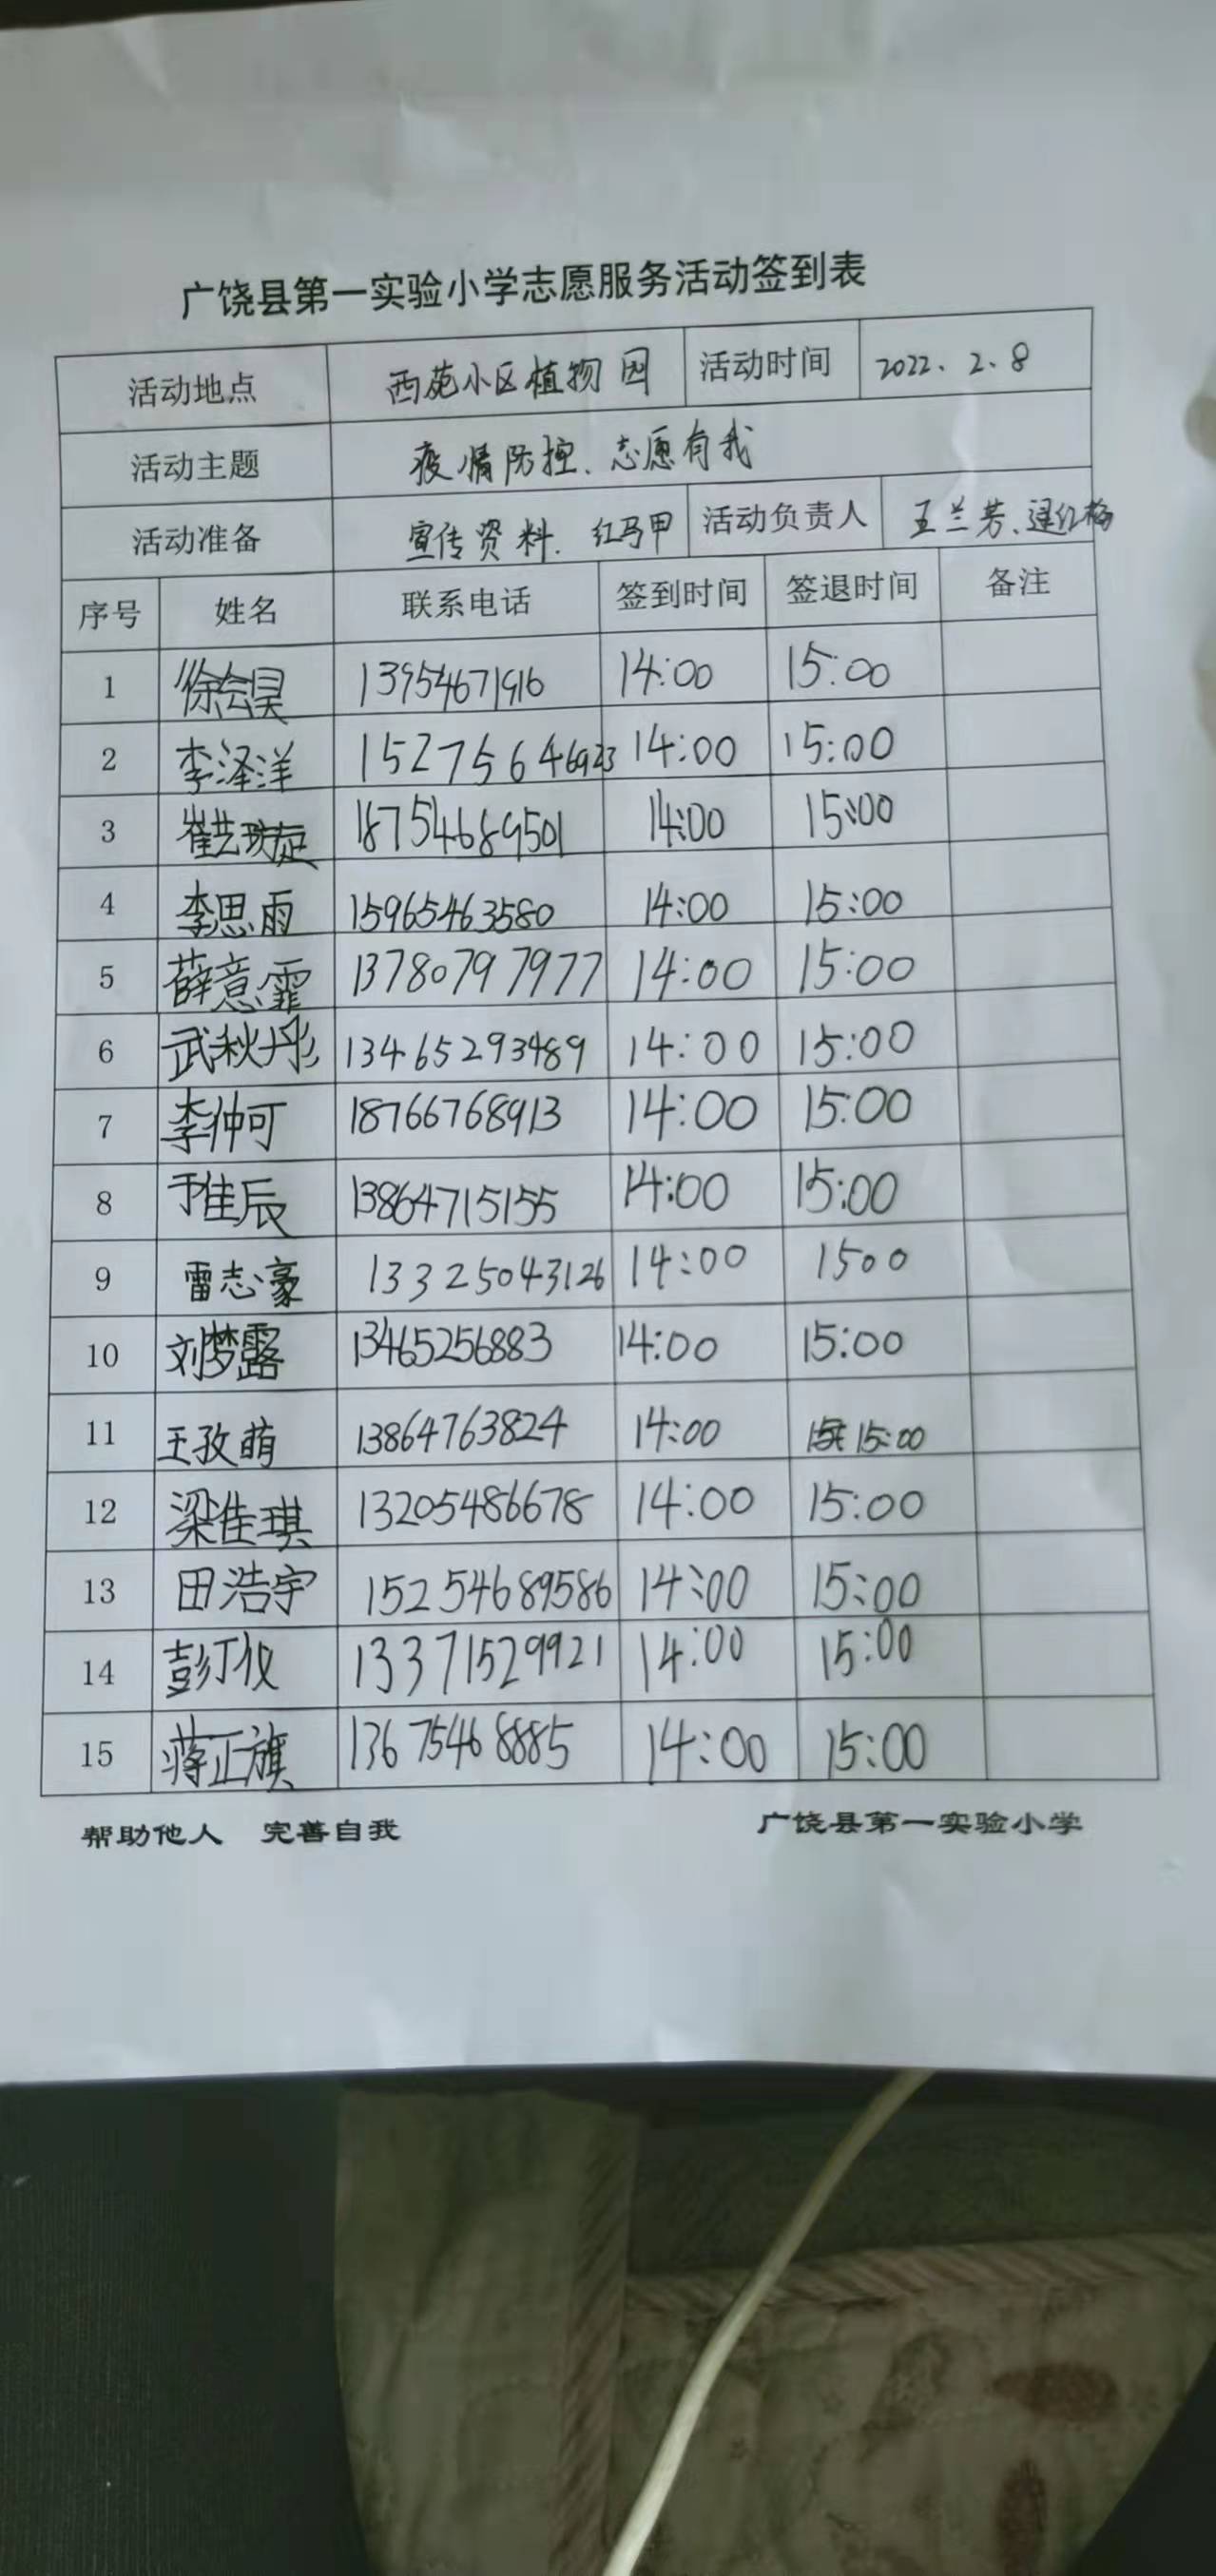 广饶县第一实验小学志愿服务活动签到表
活动地点 西苑小区植物园 活动时间 2022.2.8
活动主题 疫情防控、志愿有我
活动准备 宣传资料、红马甲 活动负责人 王兰芳、逯红梅
序号 姓名 联系电话 签到时间 签退时间 备注
1 徐会昊 13954671916 14:00 15:00
2 李泽洋 15275646923 14:00 15:00
3 崔艺璇 18754689501 14:00 15:00
4 李思雨 15965463580 14:00 15:00
5 薛意霏 13780797977 14:00 15:00
6 武秋彤 13465293489 14:00 15:00
7 李仲可 18766768913 14:00 15:00
8 于佳辰 13864715155 14:00 15:00
9 雷志豪 13325043126 14:00 1500
10 刘梦露 13465256883 14:00 15:00
11 王孜萌 13864763824 14:00 15:00
12 梁佳琪 13205486678 14:00 15:00
13 田浩宇 15254689586 14:00 15:00
14 彭仪 13371529921 14:00 15:00
15 蒋正旗 13675468885 14:00 15:00
帮助他人 完善自我 广饶县第一实验小学